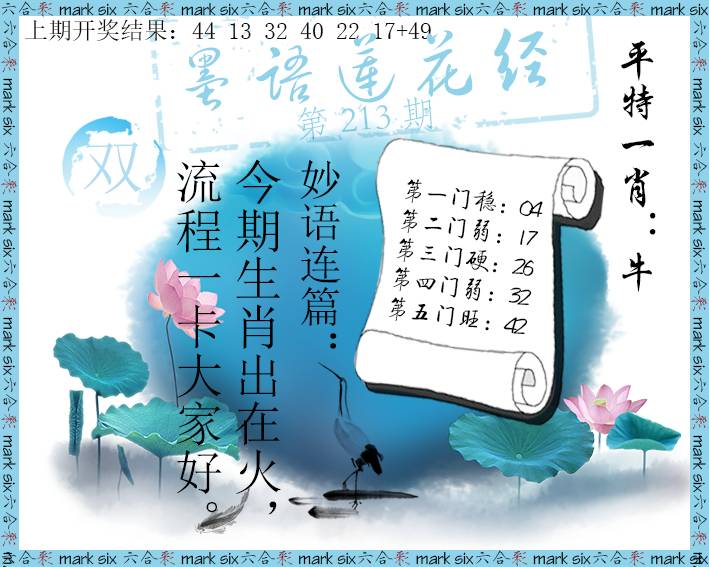 上期开奖结果：44 13 32 40 22 17+49
墨语莲花经
第 213 期
双
平特一肖：牛
妙语连篇：
今期生肖出在火，
流程一卡大家好。
第一门稳：04
第二门弱：17
第三门硬：26
第四门弱：32
第五门旺：42
mark six 六合彩 mark six 六合彩 mark six 六合彩 mark six 六合彩 mark six 六合彩